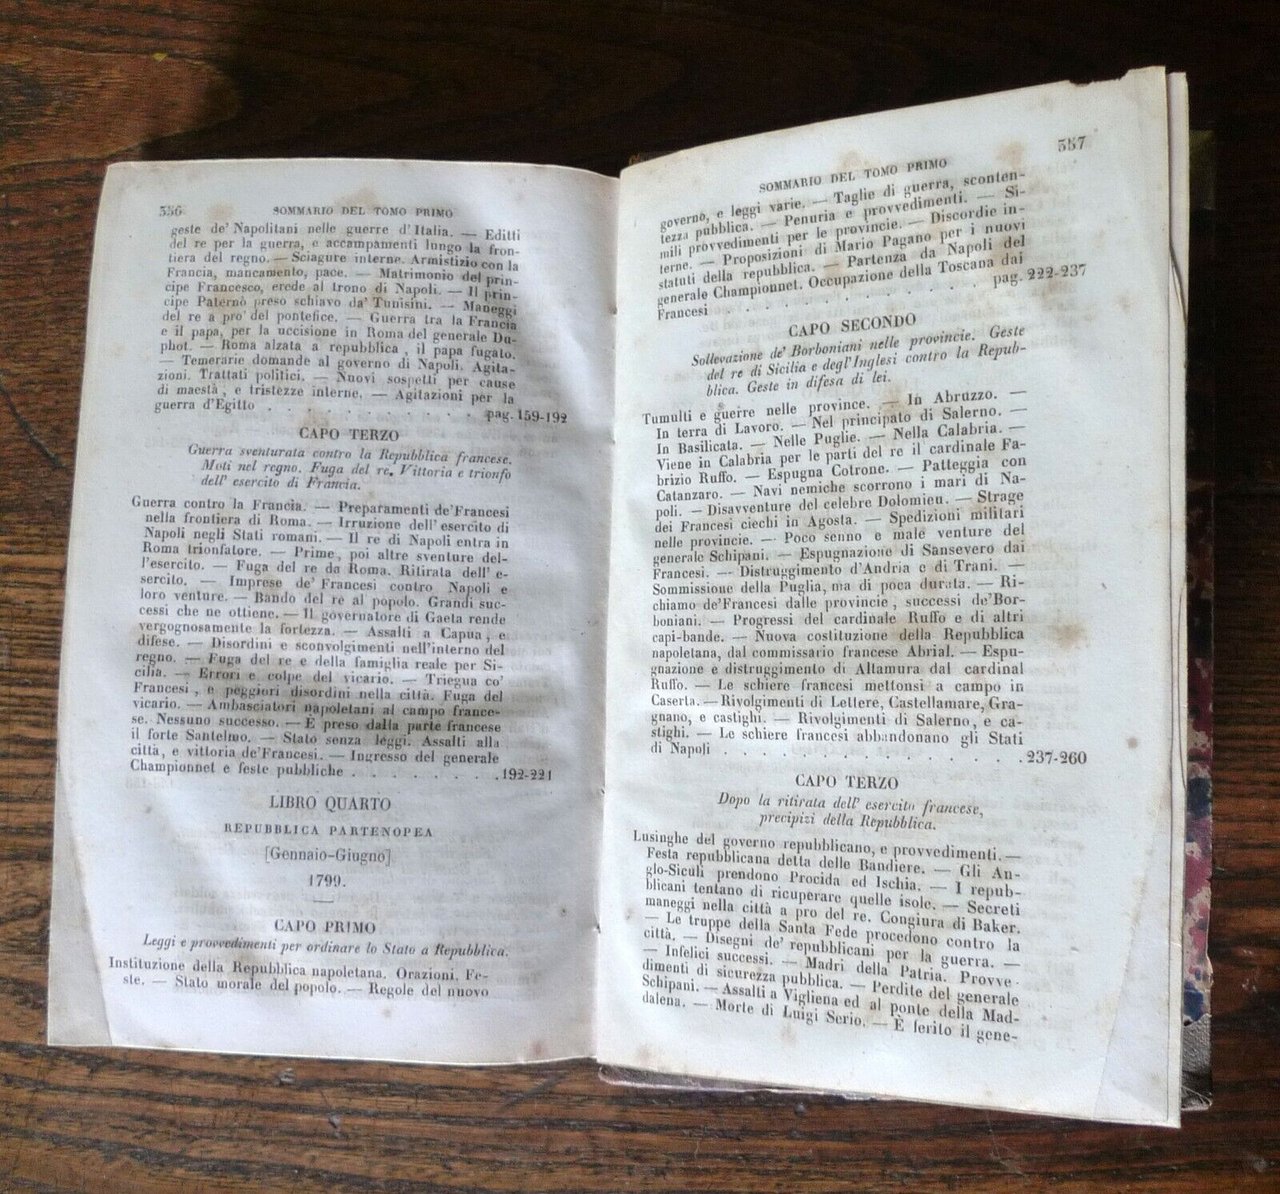 356 SOMMARIO DEL TOMO PRIMO
geste de' Napolitani nelle guerre d'Italia. — Editti
del re per la guerra, e accampamenti lungo la fron-
tiera del regno. — Sciagure interne. Armistizio con la
Francia, mancamento, pace. — Matrimonio del prin-
cipe Francesco, erede al trono di Napoli. — Il prin-
cipe Paternò preso schiavo da' Tunisini. — Maneggi
del re a pro' del pontefice. — Guerra tra la Francia
e il papa, per la uccisione in Roma del generale Du-
phot. — Roma alzata a repubblica, il papa fugato.
— Temerarie domande al governo di Napoli. Agita-
zioni. Trattati politici. — Nuovi sospetti per cause
di maestà, e tristezze interne. — Agitazioni per la
guerra d'Egitto . . . . . . . . . . . pag. 159-192
CAPO TERZO
Guerra sventurata contro la Repubblica francese.
Moti nel regno. Fuga del re. Vittoria e trionfo
dell' esercito di Francia.
Guerra contro la Francia. — Preparamenti de'Francesi
nella frontiera di Roma. — Irruzione dell' esercito di
Napoli negli Stati romani. — Il re di Napoli entra in
Roma trionfatore. — Prime, poi altre sventure del-
l'esercito. — Fuga del re da Roma. Ritirata dell' e-
sercito. — Imprese de' Francesi contro Napoli e
loro venture. — Bando del re al popolo. Grandi suc-
cessi che ne ottiene. — Il governatore di Gaeta rende
vergognosamente la fortezza. — Assalti a Capua, e
difese. — Disordini e sconvolgimenti nell'interno del
regno. — Fuga del re e della famiglia reale per Si-
cilia. — Errori e colpe del vicario. — Triegua co'
Francesi, e peggiori disordini nella città. Fuga del
vicario. — Ambasciatori napoletani al campo france-
se. Nessuno successo. — È preso dalla parte francese
il forte Santelmo. — Stato senza leggi. Assalti alla
città, e vittoria de'Francesi. — Ingresso del generale
Championnet e feste pubbliche . . . . . . . . 192-221
LIBRO QUARTO
REPUBBLICA PARTENOPEA
[Gennaio-Giugno]
1799.
CAPO PRIMO
Leggi e provvedimenti per ordinare lo Stato a Repubblica.
Instituzione della Repubblica napoletana. Orazioni. Fe-
ste. — Stato morale del popolo. — Regole del nuovo
SOMMARIO DEL TOMO PRIMO 357
governo, e leggi varie. — Taglie di guerra, sconten-
tezza pubblica. — Penuria e provvedimenti. — Si-
mili provvedimenti per le provincie. — Discordie in-
terne. — Proposizioni di Mario Pagano per i nuovi
statuti della repubblica. — Partenza da Napoli del
generale Championnet. Occupazione della Toscana dai
Francesi . . . . . . . . . . . . pag. 222-237
CAPO SECONDO
Sollevazione de' Borboniani nelle provincie. Geste
del re di Sicilia e degl'Inglesi contro la Repub-
blica. Geste in difesa di lei.
Tumulti e guerre nelle province. — In Abruzzo. —
In terra di Lavoro. — Nel principato di Salerno. —
In Basilicata. — Nelle Puglie. — Nella Calabria. —
Viene in Calabria per le parti del re il cardinale Fa-
brizio Ruffo. — Espugna Cotrone. — Patteggia con
Catanzaro. — Navi nemiche scorrono i mari di Na-
poli. — Disavventure del celebre Dolomieu. — Strage
dei Francesi ciechi in Agosta. — Spedizioni militari
nelle provincie. — Poco senno e male venture del
generale Schipani. — Espugnazione di Sansevero dai
Francesi. — Distruggimento d'Andria e di Trani. —
Sommissione della Puglia, ma di poca durata. — Ri-
chiamo de'Francesi dalle provincie, successi de'Bor-
boniani. — Progressi del cardinale Ruffo e di altri
capi-bande. — Nuova costituzione della Repubblica
napoletana, dal commissario francese Abrial. — Espu-
gnazione e distruggimento di Altamura dal cardinal
Ruffo. — Le schiere francesi mettonsi a campo in
Caserta. — Rivolgimenti di Lettere, Castellamare, Gra-
gnano, e castighi. — Rivolgimenti di Salerno, e ca-
stighi. — Le schiere francesi abbandonano gli Stati
di Napoli . . . . . . . . . . . . . . . 237-260
CAPO TERZO
Dopo la ritirata dell' esercito francese,
precipizi della Repubblica.
Lusinghe del governo repubblicano, e provvedimenti. —
Festa repubblicana detta delle Bandiere. — Gli An-
glo-Siculi prendono Procida ed Ischia. — I repub-
blicani tentano di ricuperare quelle isole. — Secreti
maneggi nella città a pro del re. Congiura di Baker.
— Le truppe della Santa Fede procedono contro la
città. — Disegni de' repubblicani per la guerra. —
— Infelici successi. — Madri della Patria. Provve-
dimenti di sicurezza pubblica. — Perdite del generale
Schipani. — Assalti a Vigliena ed al ponte della Mad-
dalena. — Morte di Luigi Serio. — È ferito il gene-